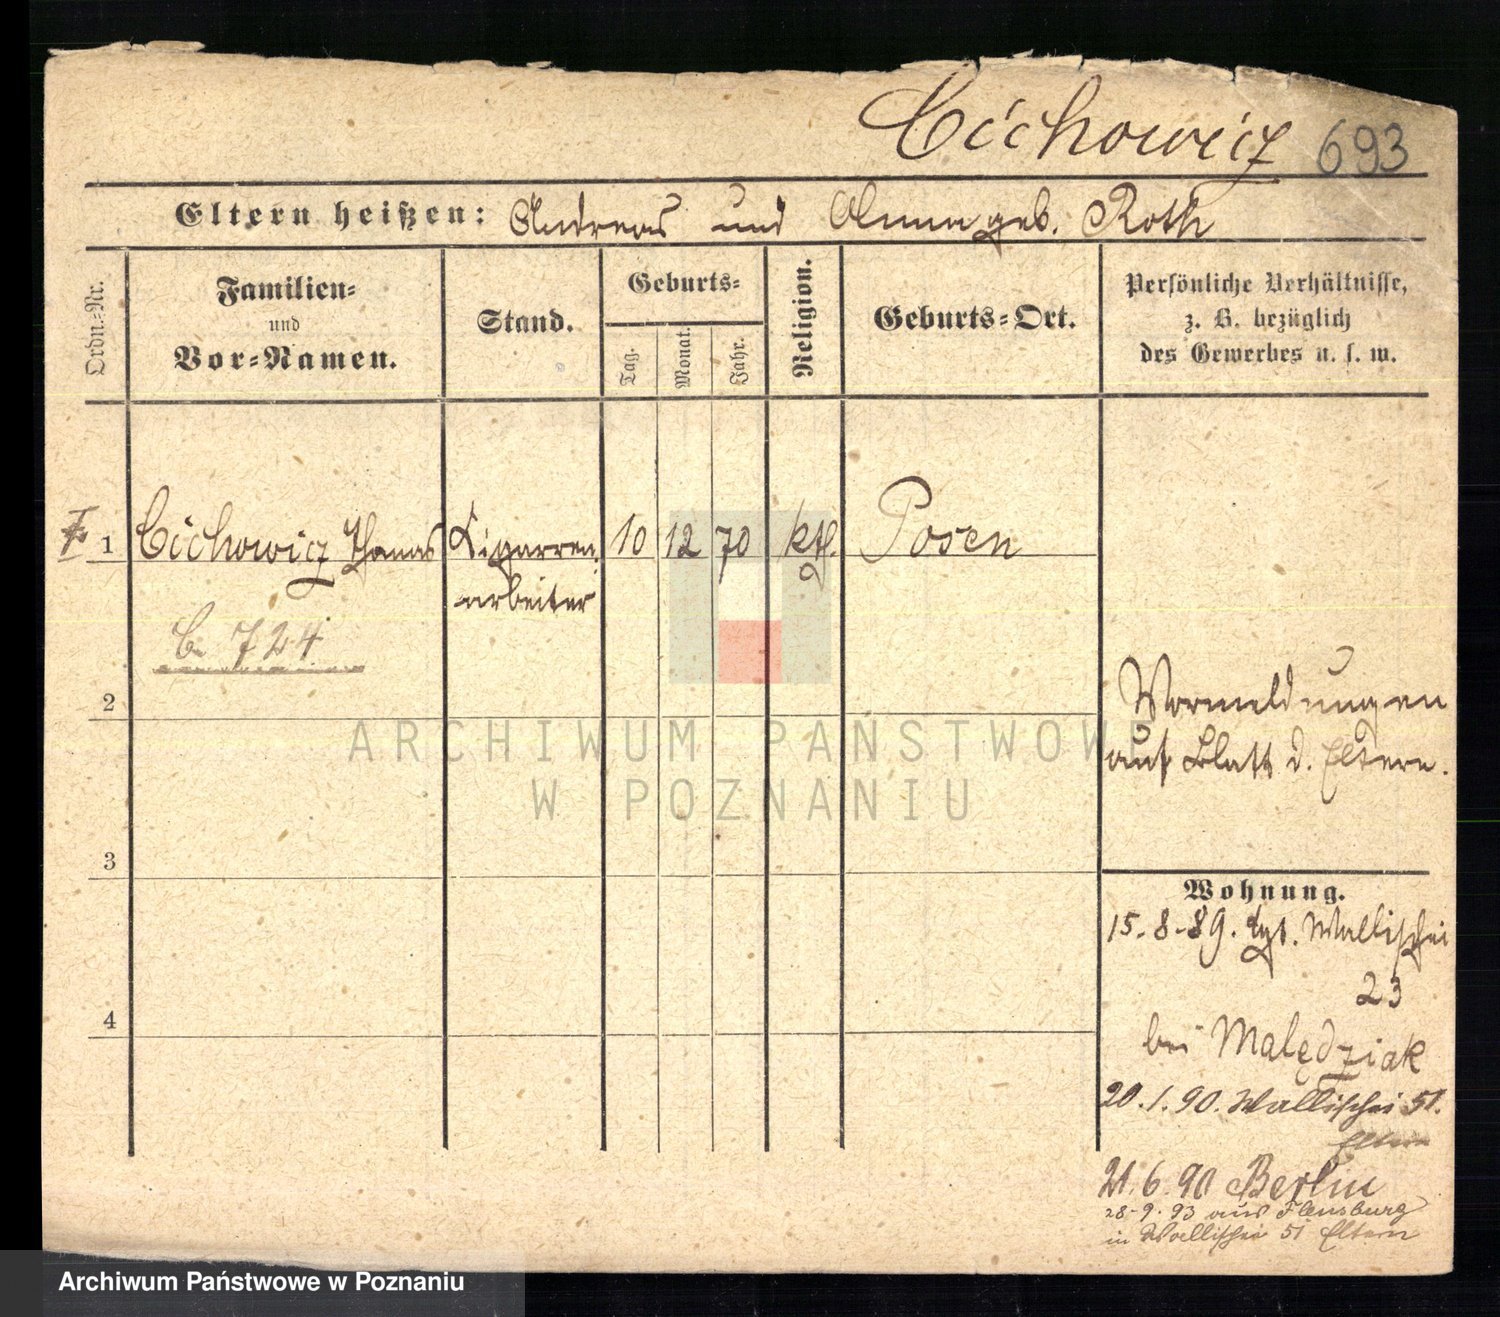 Cichowicz 693
Eltern heißen: Andreas und Anna geb. Roth
Ordn.-Nr.
Familien-
und
Vor-Namen.
Stand.
Geburts-
Tag.
Monat.
Jahr.
Religion.
Geburts-Ort.
Persönliche Verhältnisse,
z. B. bezüglich
des Gewerbes u. s. w.
1 Cichowicz Thomas Zigarren 10 12 70 ktl. Posen
arbeiter
C. 724
2
Vormeldungen
auf Blatt d. Eltern.
ARCHIWUM PAŃSTWOWE
W POZNANIU
3
Wohnung.
15.8.89. Wallischei
23
4
bei Malędziak
20.1.90. Wallischei 51.
Eltern
21.6.90 Berlin
28.9.93 aus Flensburg
in Wallischei 51 Eltern
Archiwum Państwowe w Poznaniu